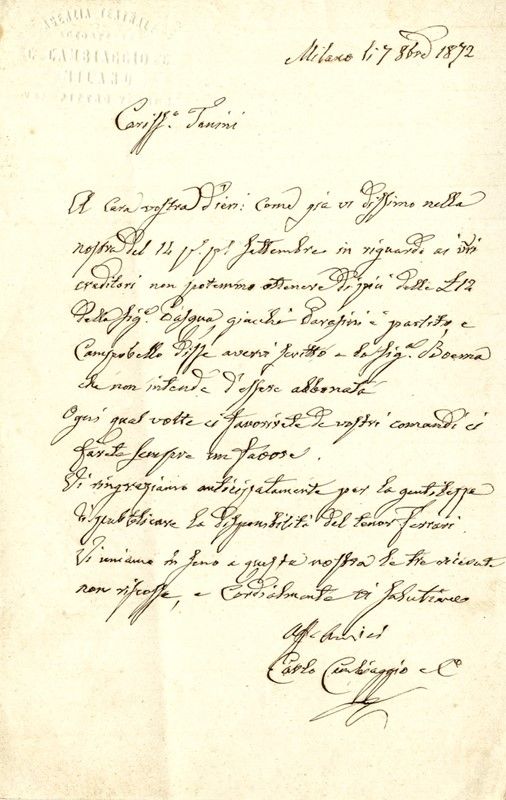 AGENZIA TEATRALE
C. CAMBIAGGIO
MILANO
Milano li 7 8bre 1872
Cariss.º Tanini
A cara vostra d'ieri: Come già vi dissimo nella
nostra del 14 p.º p.º Settembre in riguardo ai vri
creditori non potemmo ottenere di più delle £12
della Sig.ª Pasqua, giacchè Parasini è partito, e
Campobello disse avervi scritto e la Sig.ª Boema
che non intende d'essere abbonata
Ogni qual volta ci favorirete de vostri comandi ci
farete sempre un favore.
Vi ringraziamo anticipatamente per la gentilezza
di pubblicare la disponibilità del tenor Ferrari.
Vi uniamo in seno a questa nostra le tre ricevute
non riscosse, e cordialmente vi salutiamo
Aff. Amici
Carlo Cambiaggio e C.º